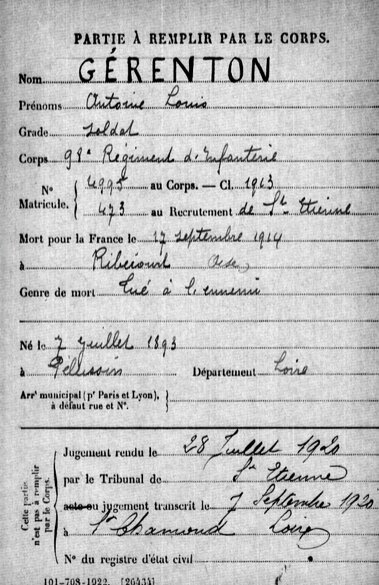 PARTIE À REMPLIR PAR LE CORPS.
Nom GÉRENTON
Prénoms Antoine Louis
Grade soldat
Corps 98e Régiment d'Infanterie
N° Matricule. { 4995 au Corps. — Cl. 1913
473 au Recrutement de St Etienne
Mort pour la France le 17 septembre 1914
à Ribécourt Oise
Genre de mort Tué à l'ennemi
Né le 7 juillet 1893
à Pélussin Département Loire
Arrt municipal (pr Paris et Lyon), à défaut rue et N°. }
Cette partie n'est pas à remplir par le Corps.
Jugement rendu le 28 Juillet 1920
par le Tribunal de St Etienne
acte ou jugement transcrit le 7 Septembre 1920
à St Chamond Loire
N° du registre d'état civil
101-708-1922. [26434]